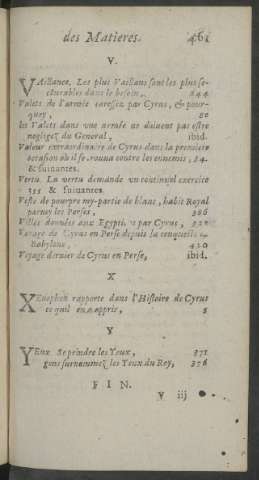 des Matieres. 461
V.
VAillance. Les plus Vaillans sont les plus se-
courables dans le besoin. 244
Valets de l'armée caressez par Cyrus, & pour-
quoy, 80
les Valets dans une armée ne doivent pas estre
negligez du General, ibid.
Valeur extraordinaire de Cyrus dans la premiere
occasion où il se trouva contre les ennemis, 34.
& suivantes.
Vertu. La vertu demande un continuel exercice
355 & suivantes.
Veste de pourpre my-partie de blanc, habit Royal
parmy les Perses, 386
Villes données aux Egyptiens par Cyrus,
Voyage de Cyrus en Perse depuis la conqueste de
Babylone, 420
Voyage dernier de Cyrus en Perse, ibid.
X
XEnophon rapporte dans l'Histoire de Cyrus
ce qu'il en a appris, 5
Y
YEux. Se peindre les Yeux, 371
gens surnommez les Yeux du Roy, 376
FIN.
V iij